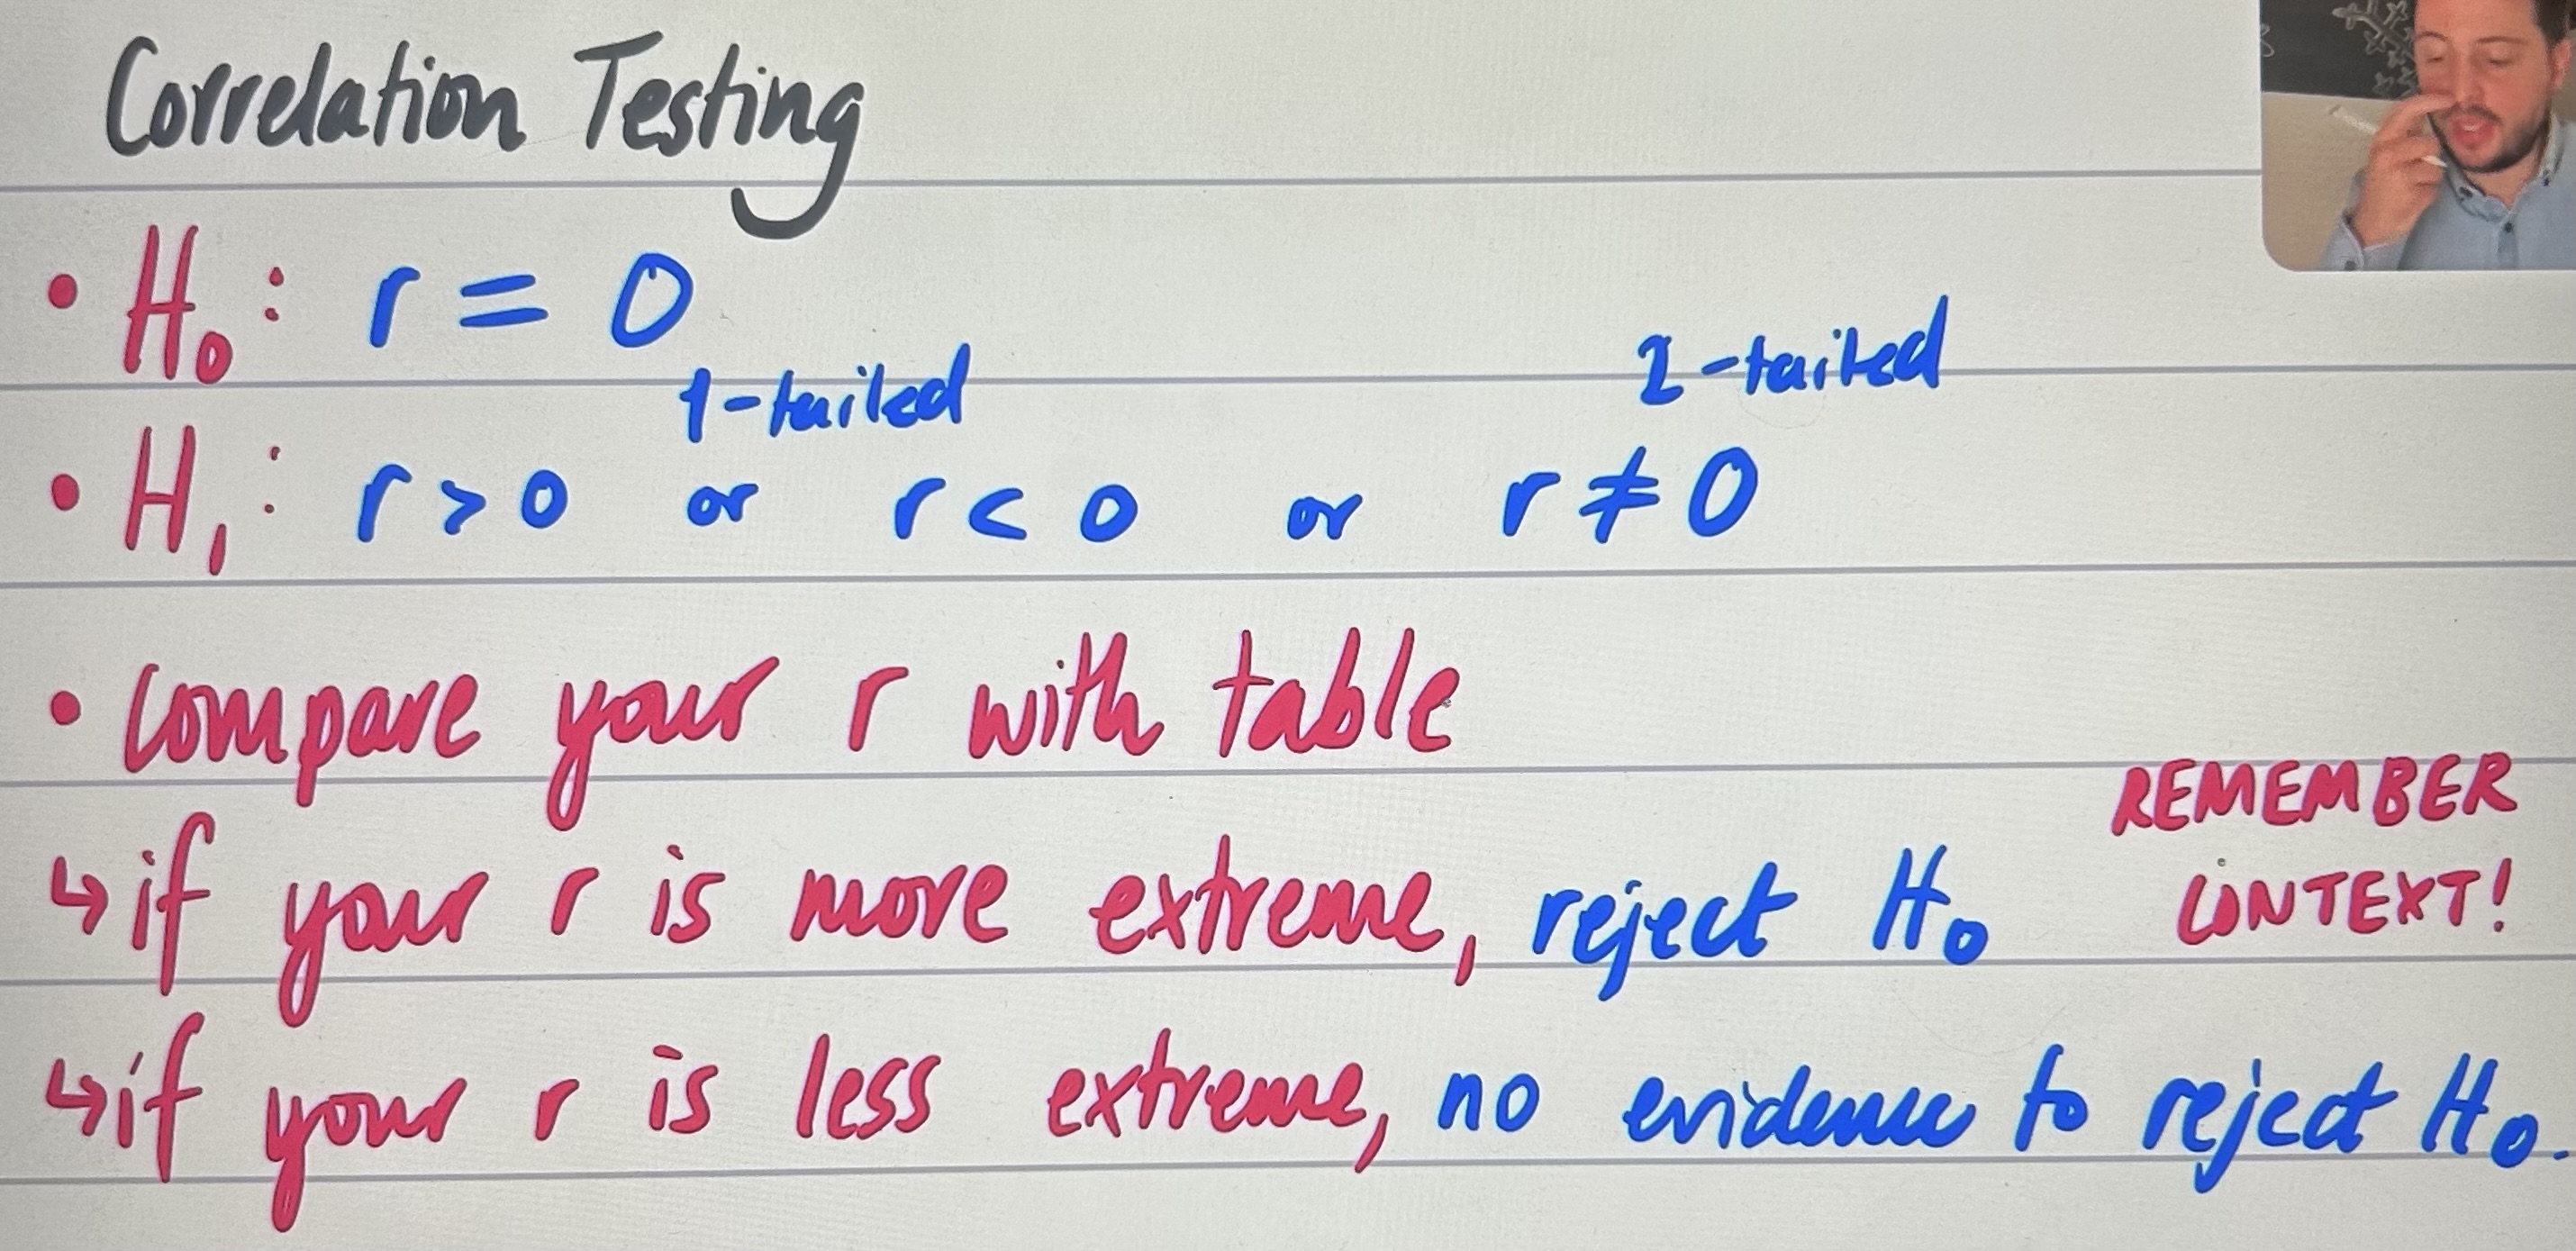 Correlation Testing
• H₀: r = 0
1-tailed 2-tailed
• H₁: r > 0 or r < 0 or r ≠ 0
• Compare your r with table
REMEMBER
↳ if your r is more extreme, reject H₀
CONTEXT!
↳ if your r is less extreme, no evidence to reject H₀.